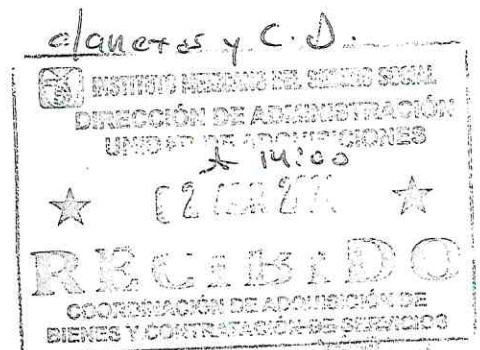 c/anexos y C.D.
INSTITUTO MEXICANO DEL SEGURO SOCIAL
DIRECCIÓN DE ADMINISTRACIÓN
UNIDAD DE ADQUISICIONES
14:00
RECIBIDO
COORDINACIÓN DE ADQUISICIÓN DE
BIENES Y CONTRATACIÓN DE SERVICIOS